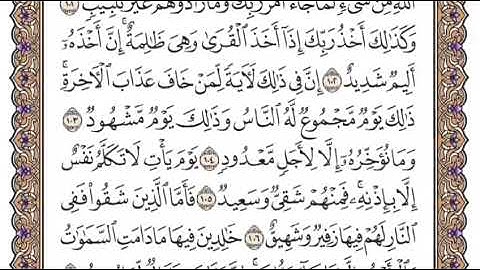 ٱللَّهِ مِن شَىْءٍ لَّمَّا جَآءَ أَمْرُ رَبِّكَ وَمَا زَادُوهُمْ غَيْرَ تَتْبِيبٍ ١٠١
وَكَذَٰلِكَ أَخْذُ رَبِّكَ إِذَآ أَخَذَ ٱلْقُرَىٰ وَهِىَ ظَٰلِمَةٌ إِنَّ أَخْذَهُۥٓ
أَلِيمٌ شَدِيدٌ ١٠٢ إِنَّ فِى ذَٰلِكَ لَءَايَةً لِّمَنْ خَافَ عَذَابَ ٱلْءَاخِرَةِ
ذَٰلِكَ يَوْمٌ مَّجْمُوعٌ لَّهُ ٱلنَّاسُ وَذَٰلِكَ يَوْمٌ مَّشْهُودٌ ١٠٣
وَمَا نُؤَخِّرُهُۥٓ إِلَّا لِأَجَلٍ مَّعْدُودٍ ١٠٤ يَوْمَ يَأْتِ لَا تَكَلَّمُ نَفْسٌ
إِلَّا بِإِذْنِهِۦ فَمِنْهُمْ شَقِىٌّ وَسَعِيدٌ ١٠٥ فَأَمَّا ٱلَّذِينَ شَقُوا۟ فَفِى
ٱلنَّارِ لَهُمْ فِيهَا زَفِيرٌ وَشَهِيقٌ ١٠٦ خَٰلِدِينَ فِيهَا مَا دَامَتِ ٱلسَّمَٰوَٰتُ